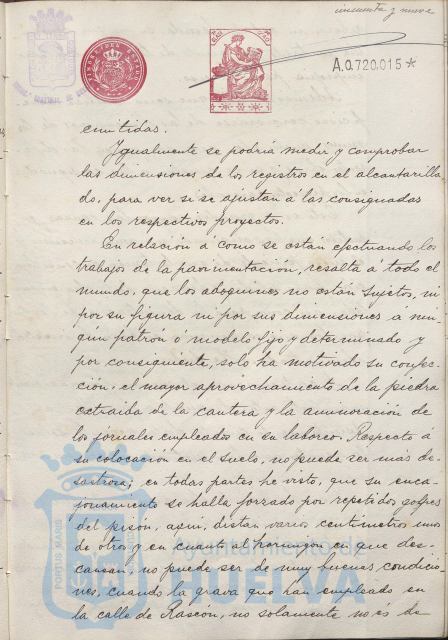 cincuenta y nueve
A.0.720.015*
emitidas.
Igualmente se podría medir y comprobar
las dimensiones de los registros en el alcantarilla
do, para ver si se ajustan á las consignadas
en los respectivos proyectos.
En relación á como se están efectuando los
trabajos de la pavimentación, resalta á todo el
mundo, que los adoquines no están sujetos, ni
por su figura ni por sus dimensiones a nin
gun patrón ó modelo fijo y determinado y
por consiguiente, solo ha motivado su confec-
ción, el mayor aprovechamiento de la piedra
extraida de la cantera y la aminoración de
los jornales empleados en su laboreo. Respecto á
su colocación en el suelo, no puede ser más de-
sastrosa; en todas partes he visto, que su enca-
jonamiento se halla forzado por repetidos golpes
del pisón, aquí, distan varios centímetros unos
de otros y en cuanto al hormigon en que des-
cansan, no puede ser de muy buenas condicio-
nes, cuando la grava que han empleado en
la calle de Rascon, no solamente no és de
PORTUS MARIS
Ayuntamiento de
HUELVA